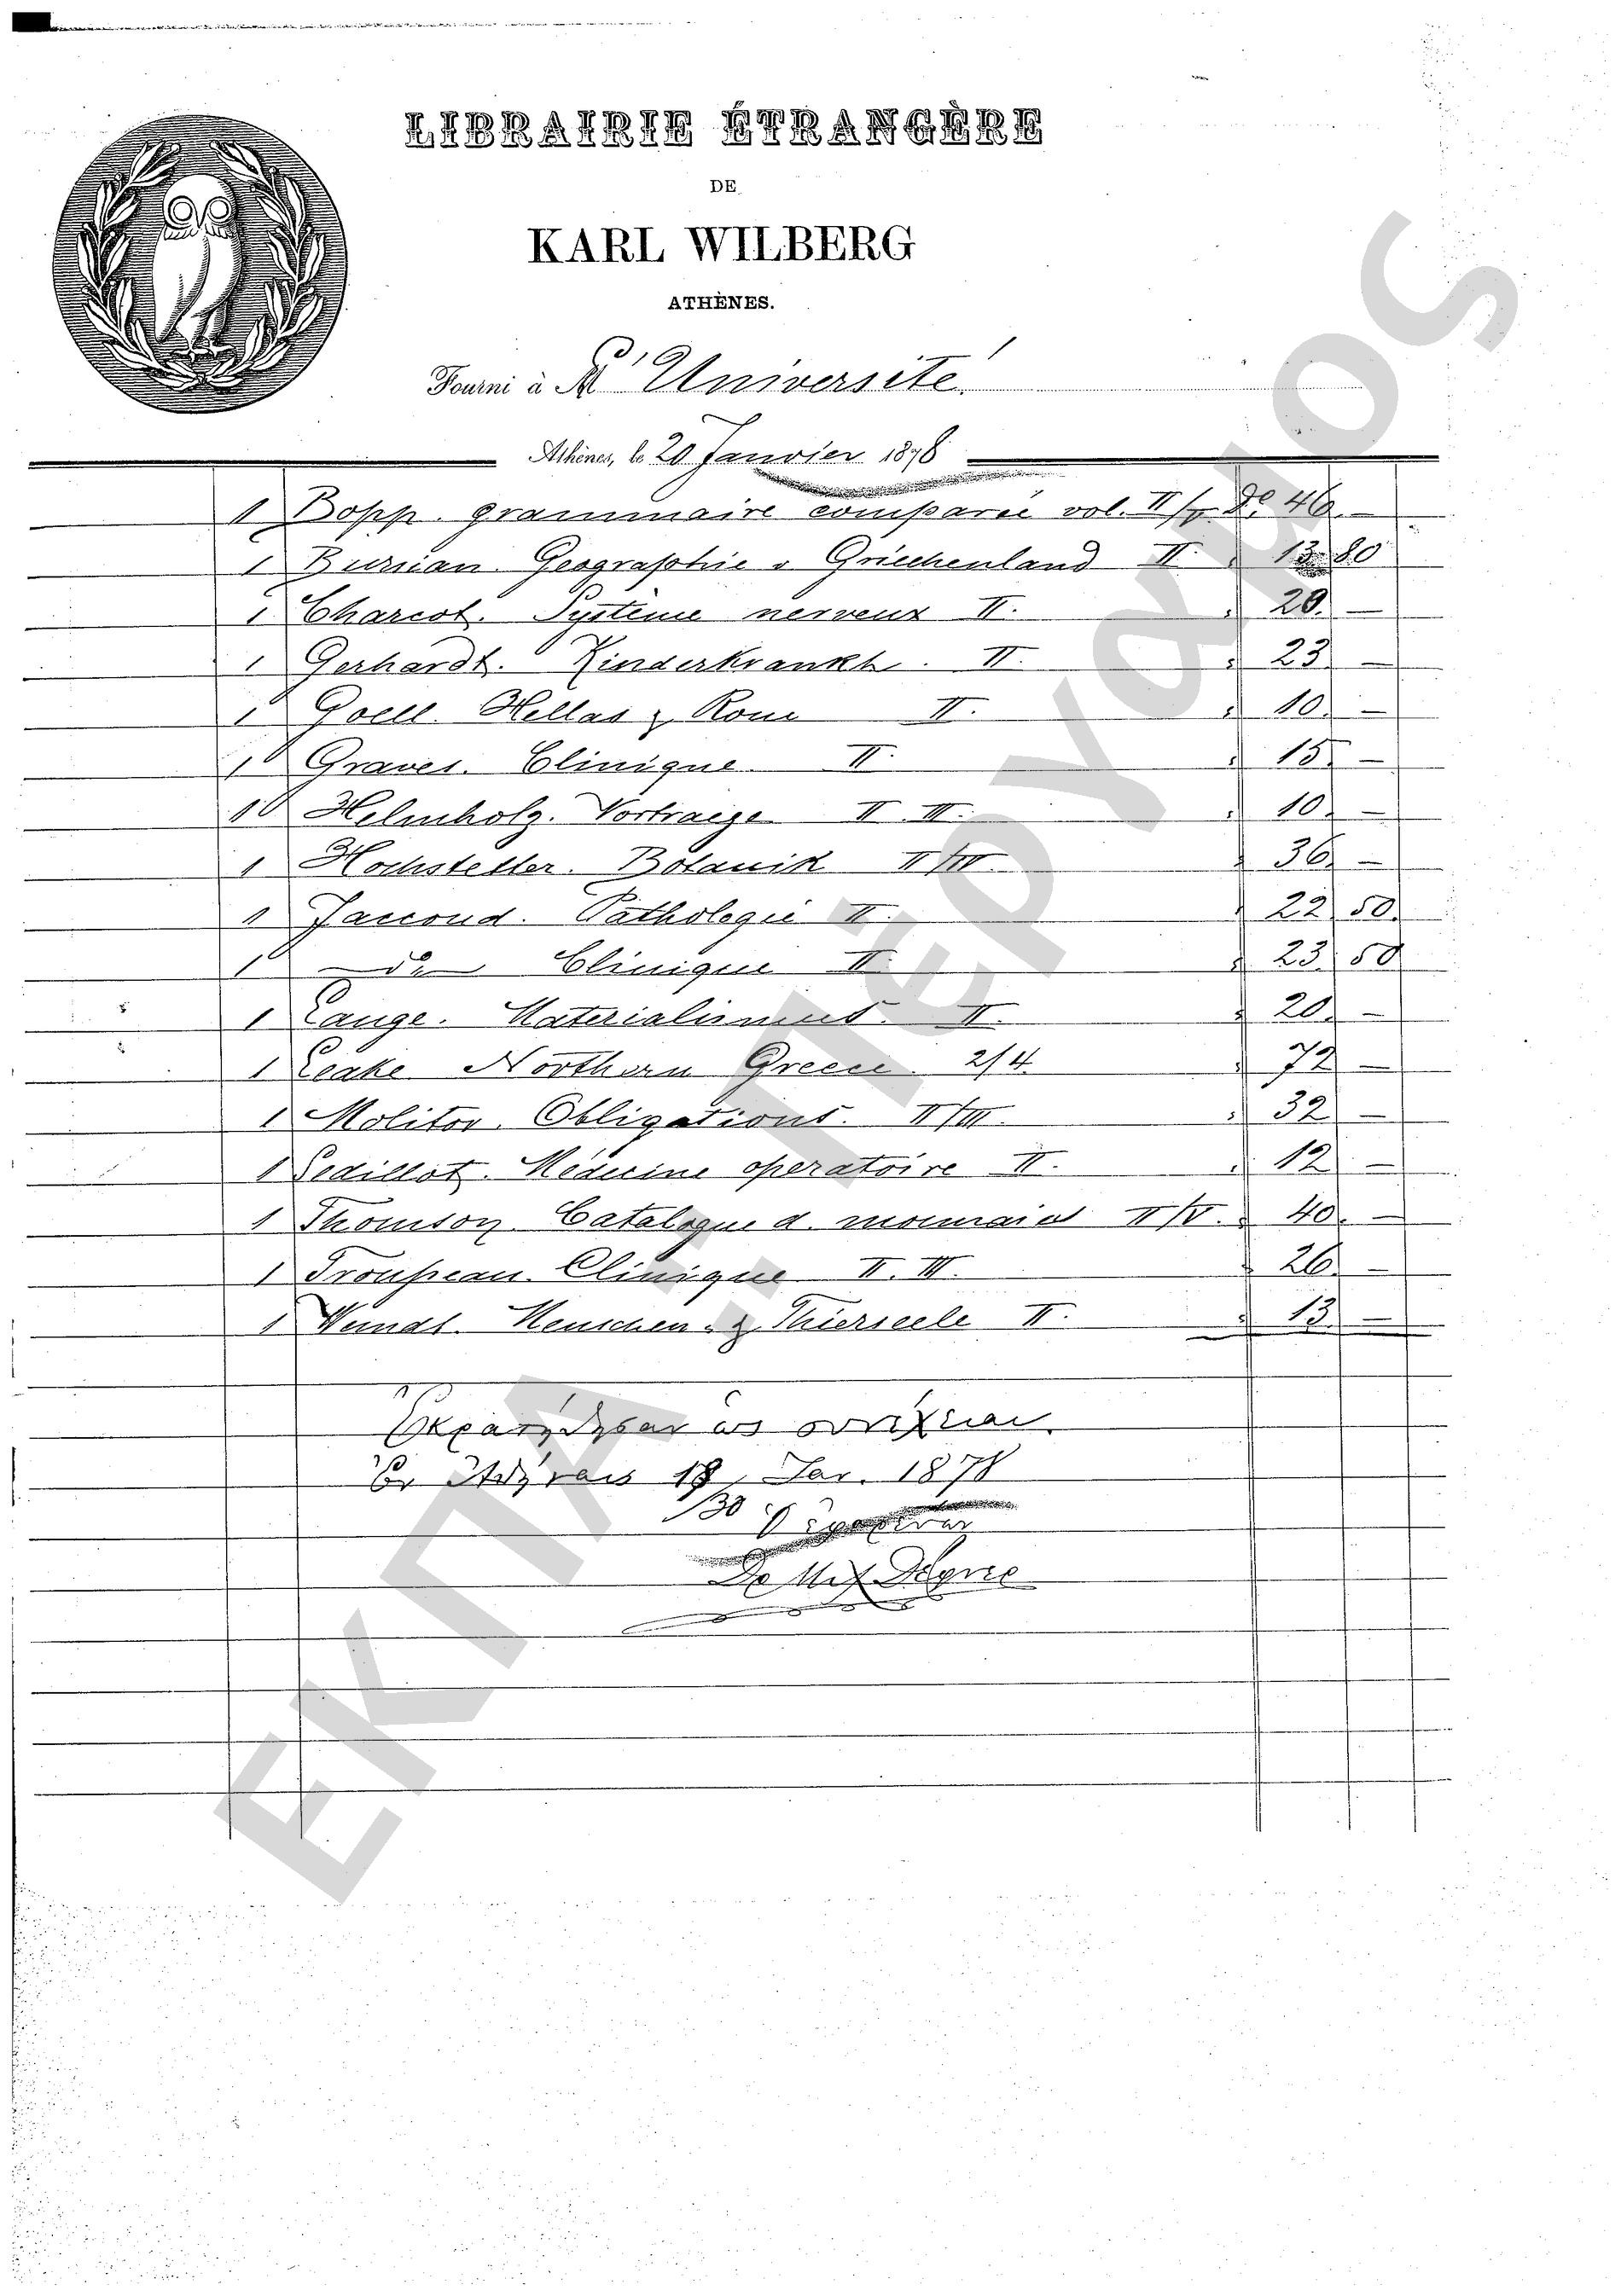 LIBRAIRIE ÉTRANGÈRE
DE
KARL WILBERG
ATHÈNES.
Fourni à l'Université.
Athènes, le 20 Janvier 1878
1 Bopp. grammaire comparée vol. II/ 46.—
1 Bursian Geographie v Griechenland II. " 13 80
1 Charcot. Système nerveux II. " 20.—
1 Gerhardt. Kinderkrankh. II. " 23 —
1 Goell. Hellas & Rom II. " 10.—
1 Graves. Clinique II. " 15 —
1 Helmholz. Vortraege II. III. " 10.—
1 Hochstetter. Botanik II/III. " 36.—
1 Jaccoud. Pathologie II. " 22 50.
1 — do — Clinique II. " 23. 50
1 Lange. Materialismus. II. " 20.—
1 Leake Northern Greece. 2/4. " 72 —
1 Molitor. Obligations. II/III. " 32 —
1 Sedillot. Médecine operatoire II. " 12 —
1 Thomson Catalogue d. monnaies II/V. " 40.—
1 Trousseau. Clinique II. III. " 26.—
1 Wundt. Menschen- & Thierseele II. " 13.—
ως
19 Ιαν. 1878
ΕΚΠΑ - Πέργαμος